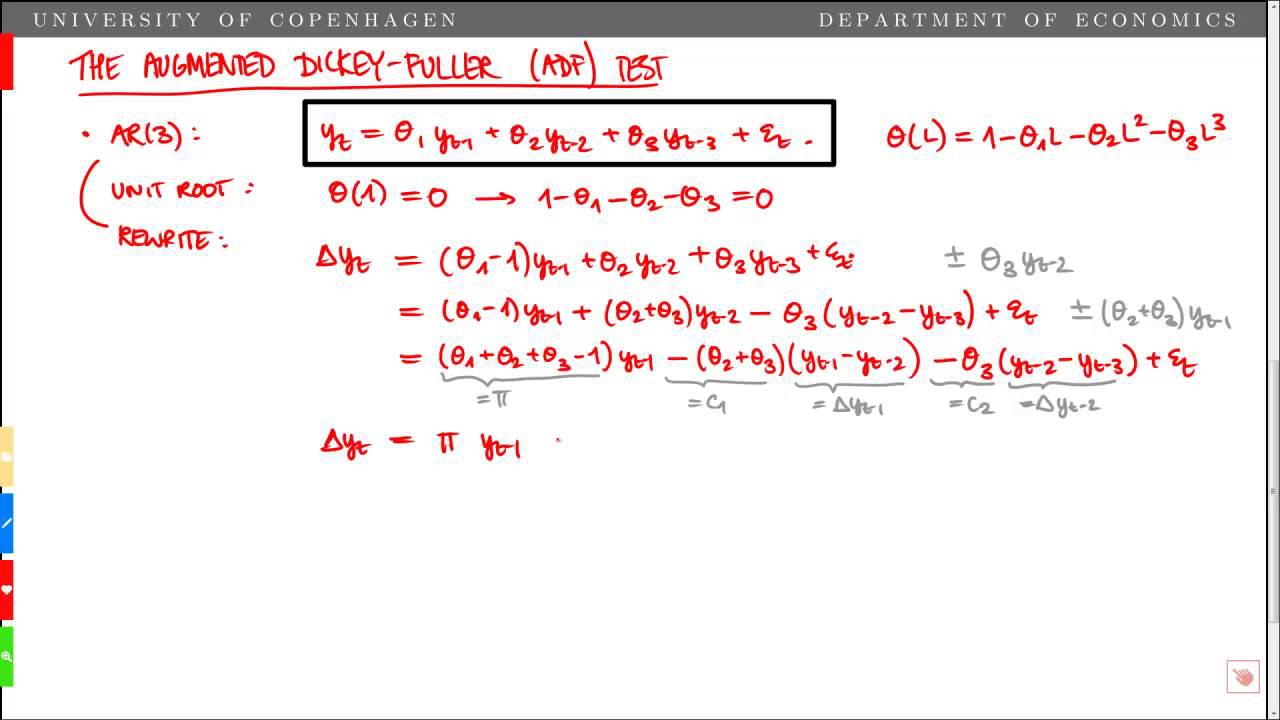 UNIVERSITY OF COPENHAGEN DEPARTMENT OF ECONOMICS
THE AUGMENTED DICKEY-FULLER (ADF) TEST
• AR(3): yₜ = θ₁yₜ₋₁ + θ₂yₜ₋₂ + θ₃yₜ₋₃ + εₜ. θ(L) = 1 - θ₁L - θ₂L² - θ₃L³
UNIT ROOT: θ(1) = 0 → 1 - θ₁ - θ₂ - θ₃ = 0
REWRITE:
Δyₜ = (θ₁-1)yₜ₋₁ + θ₂yₜ₋₂ + θ₃yₜ₋₃ + εₜ. ± θ₃yₜ₋₂
= (θ₁-1)yₜ₋₁ + (θ₂+θ₃)yₜ₋₂ - θ₃(yₜ₋₂ - yₜ₋₃) + εₜ ± (θ₂+θ₃)yₜ₋₁
= (θ₁+θ₂+θ₃-1)yₜ₋₁ - (θ₂+θ₃)(yₜ₋₁ - yₜ₋₂) - θ₃(yₜ₋₂ - yₜ₋₃) + εₜ
=π =c₁ =Δyₜ₋₁ =c₂ =Δyₜ₋₂
Δyₜ = π yₜ₋₁